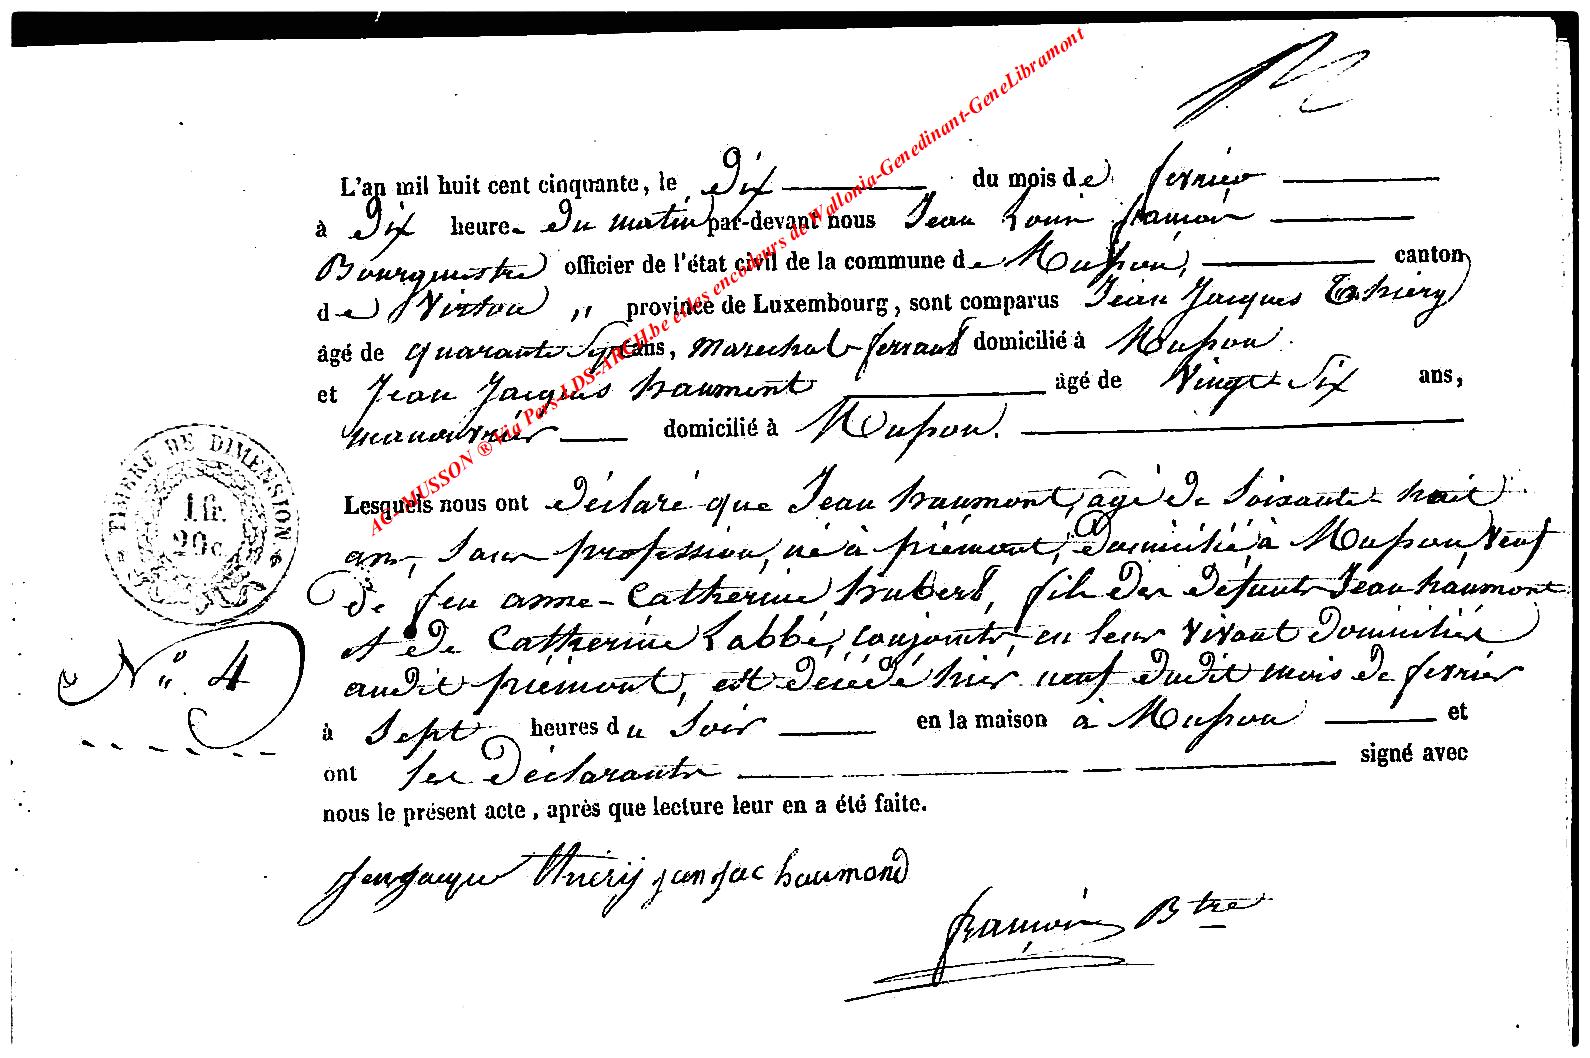 L'an mil huit cent cinquante, le dix du mois de fevrier
à dix heure du matin par-devant nous Jean Louis françois
Bourgmestre officier de l'état civil de la commune de Musson, canton
de Virton „ province de Luxembourg, sont comparus Jean Jacques Thiery
âgé de quarante sept ans, marechal ferrant domicilié à Musson.
et Jean Jacques haumont âgé de vingt six ans,
manouvrier domicilié à Musson.
Lesquels nous ont déclaré que Jean haumont, âgé de soisante huit
ans, sans profession, né à piémont, domicilié à Musson, veuf
de feu anne-Catherine hubert, fils des défunts Jean haumont
et de Catherine Labbé, conjoints, en leur vivant domiciliés
audit piémont, est décédé hier neuf dudit mois de fevrier
à sept heures du soir en la maison à Musson et
ont les déclarants signé avec
nous le présent acte, après que lecture leur en a été faite.
TIMBRE DE DIMENSION
1 fr.
20 c.
N° 4
Jean Jacque thiery jan jac haumond
françois Btre
AC-MUSSON ® Via Pers-LDS-ARCH.be et les encodeurs de Wallonia-Genedinant-GeneLibramont